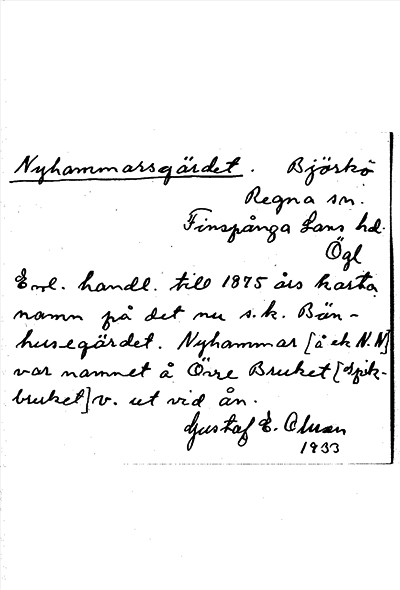 Nyhammarsgärdet. Björkö
Regna sn.
Finspånga läns hd.
Ögl
Enl. handl. till 1875 års karta
namn på det nu s.k. Bän-
husegärdet. Nyhammar [å ek N.N]
var namnet å Övre Bruket [spik-
bruket] v. ut vid ån.
Gustaf E.
1933